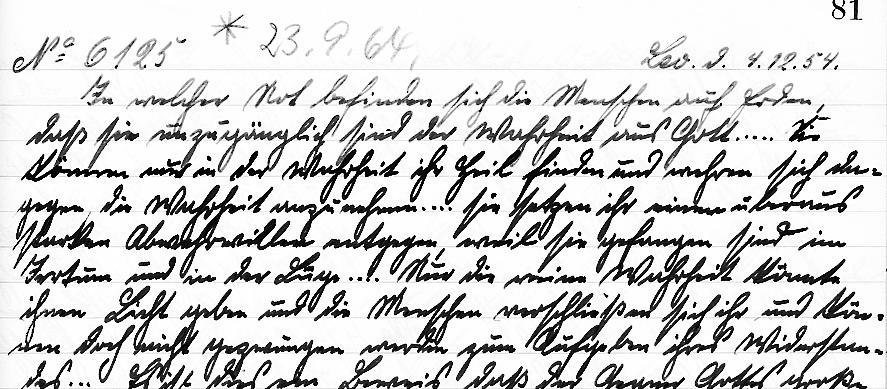 81
No 6125 * 23.9.64.
Lev. d. 4.12.54.
In welcher Not befinden sich die Menschen auf Erden,
daß sie unzugänglich sind der Wahrheit aus Gott..... Sie
können nur in der Wahrheit ihr Heil finden und wehren sich da-
gegen, die Wahrheit anzunehmen.... sie setzen ihr einen überaus
starken Abwehrwillen entgegen, weil sie gefangen sind im
Irrtum und in der Lüge.... Nur die reine Wahrheit könnte
ihnen Licht geben und die Menschen verschließen sich ihr und kön-
nen doch nicht gezwungen werden zum Aufgeben ihres Widerstan-
des... Es ist dies ein Beweis, daß der Gegner Gottes große